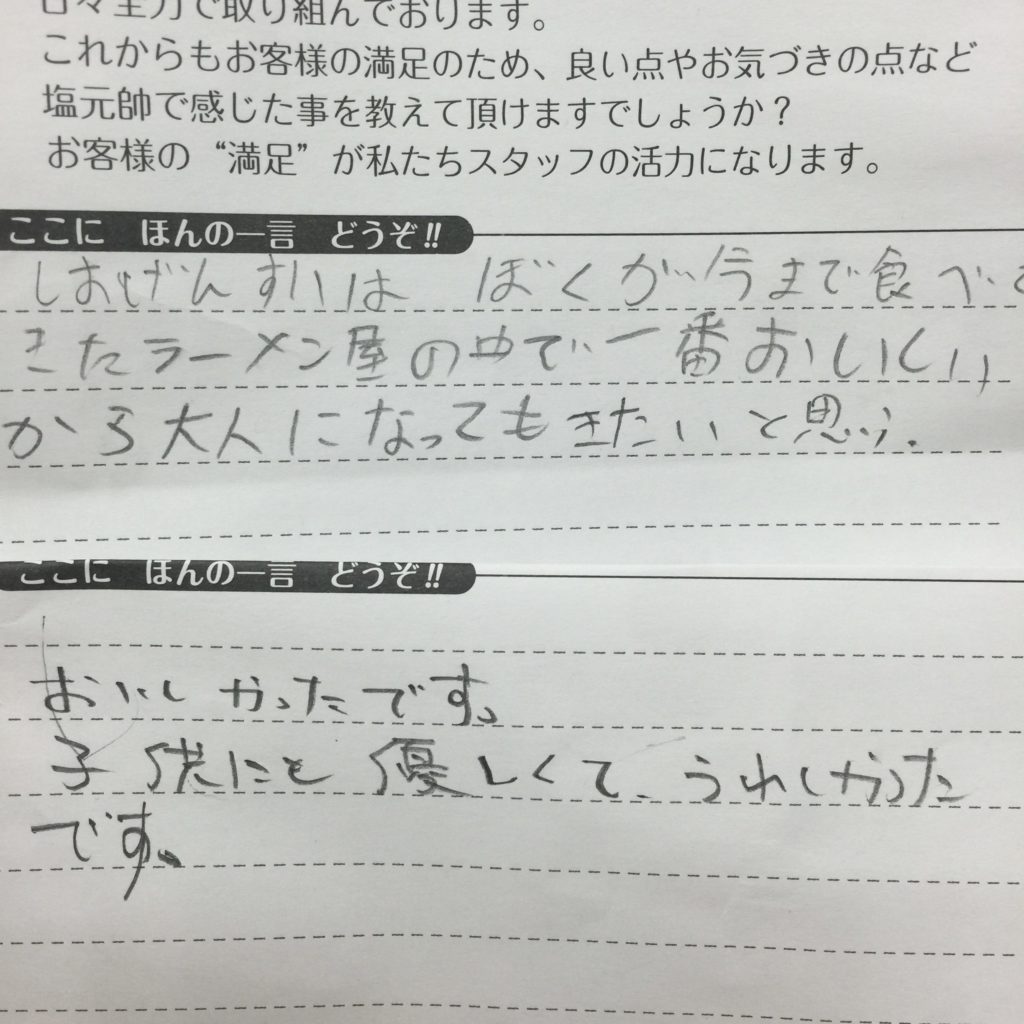 日々全力で取り組んでおります。
これからもお客様の満足のため、良い点やお気づきの点など
塩元帥で感じた事を教えて頂けますでしょうか？
お客様の“満足”が私たちスタッフの活力になります。
ここに ほんの一言 どうぞ!!
しおげんすいは ぼくが今まで食べて
きたラーメン屋の中で一番おいしい
から大人になってもきたいと思う.
ここに ほんの一言 どうぞ!!
おいしかったです。
子供にも優しくて、うれしかった
です。